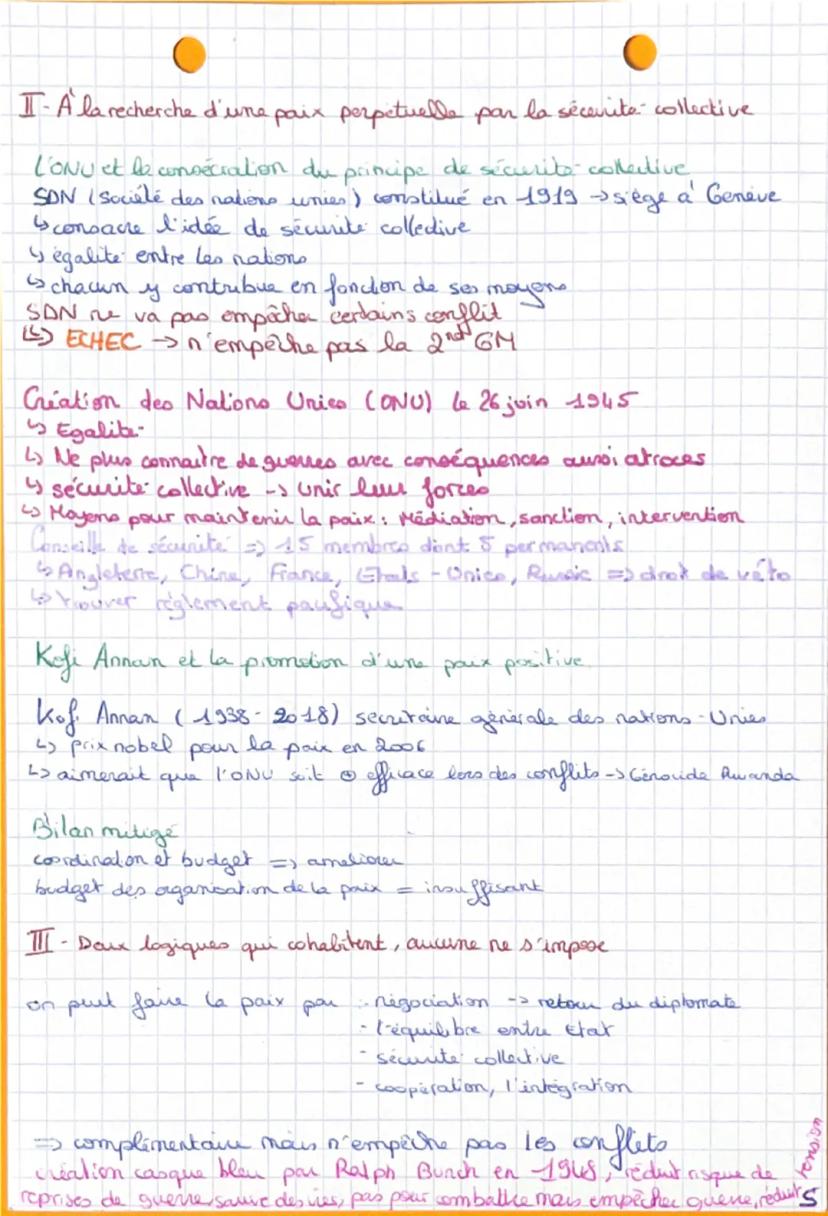 II - À la recherche d'une paix perpetuelle par la sécurité collective
L'ONU et la consécration du principe de sécurité collective
SDN (Société des nations unies) constitué en 1919 → siège à Genève
↳ consacre l'idée de sécurité collective
↳ égalité entre les nations
↳ chacun y contribue en fonction de ses moyens
SDN ne va pas empêcher certains conflit
↳ ECHEC → n'empêche pas la 2nd GM
Création des Nations Unies (ONU) le 26 juin 1945
↳ Egalité
↳ Ne plus connaitre de guerres avec conséquences aussi atroces
↳ sécurité collective → Unir leur forces
↳ Moyens pour maintenir la paix : Médiation, sanction, intervention
Conseille de sécurité => 15 membres dont 5 permanents
↳ Angleterre, Chine, France, Etats-Unies, Russie => droit de véto
↳ trouver règlement pacifique
Kofi Annan et la promotion d'une paix positive
Kofi Annan (1938-2018) secrétaire générale des nations-Unies
↳ prix nobel pour la paix en 2006
↳ aimerait que l'ONU soit ⊕ efficace lors des conflits → Génocide Rwanda
Bilan mitigé
coordination et budget => améliorer
budget des organisation de la paix = insuffisant
III - Deux logiques qui cohabitent, aucune ne s'impose
on peut faire la paix par : - négociation → retour du diplomate
- l'équilibre entre Etat
- sécurité collective
- coopération, l'intégration
=> complémentaire mais n'empêche pas les conflits
création casque bleu par Ralph Bunch en 1948, réduit risque de
reprises de guerre, sauve des vies, pas pour combattre mais empêcher guerre, réduit tension
5